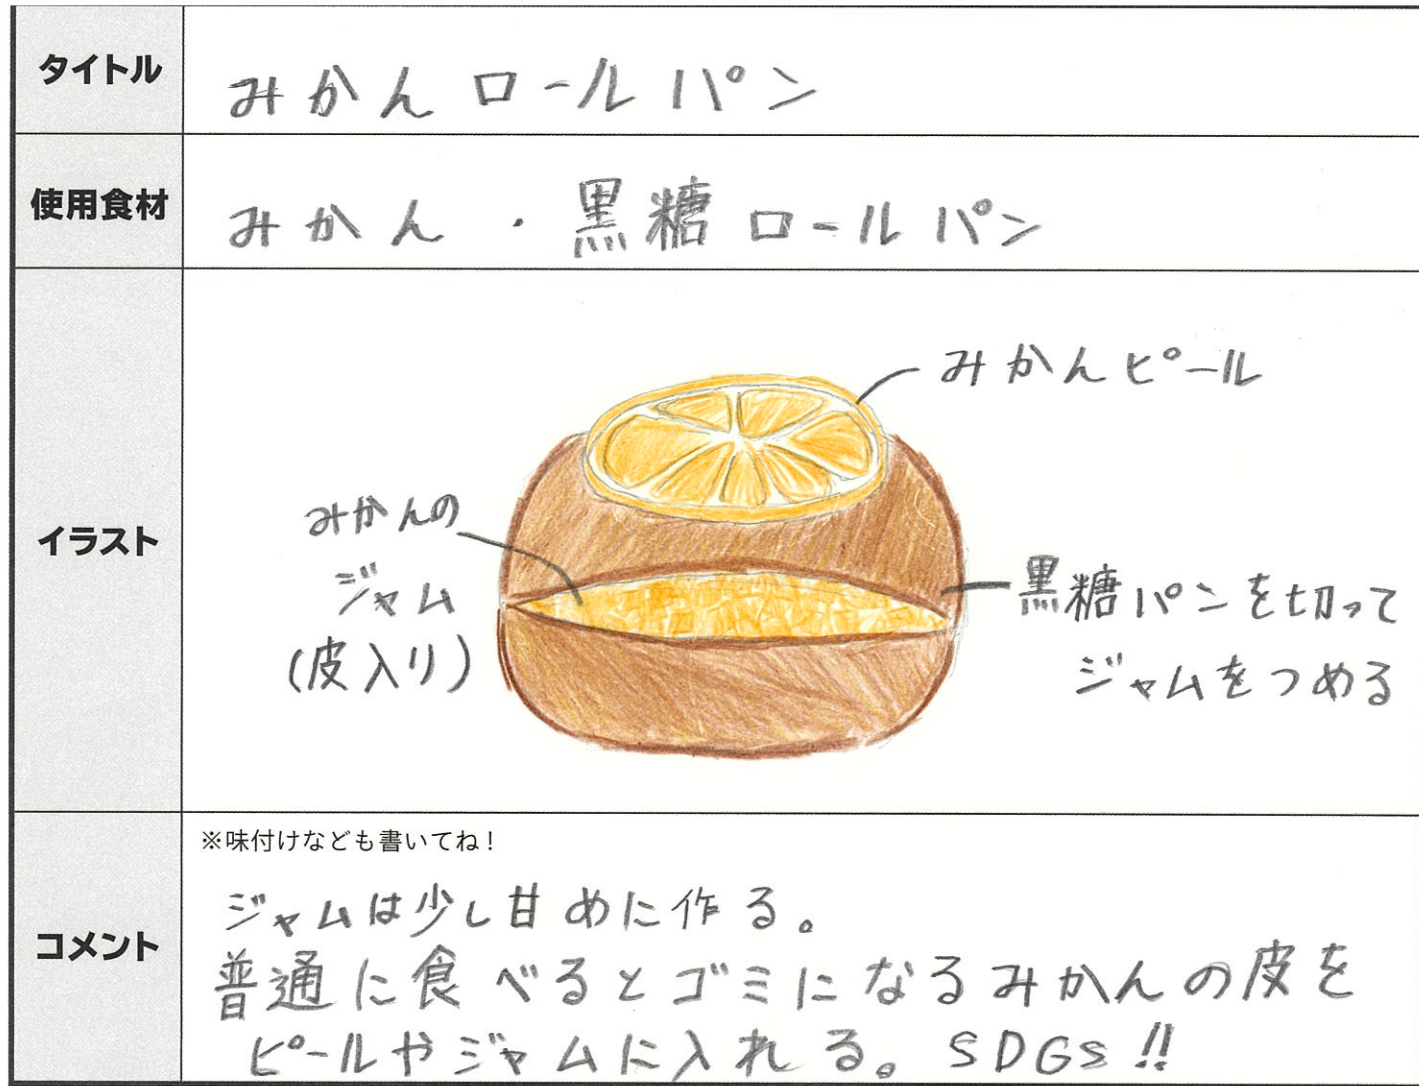 タイトル
みかんロールパン
使用食材
みかん・黒糖ロールパン
イラスト
みかんピール
みかんの
ジャム
(皮入り)
黒糖パンを切って
ジャムをつめる
コメント
※味付けなども書いてね!
ジャムは少し甘めに作る。
普通に食べるとゴミになるみかんの皮を
ピールやジャムに入れる。SDGs!!